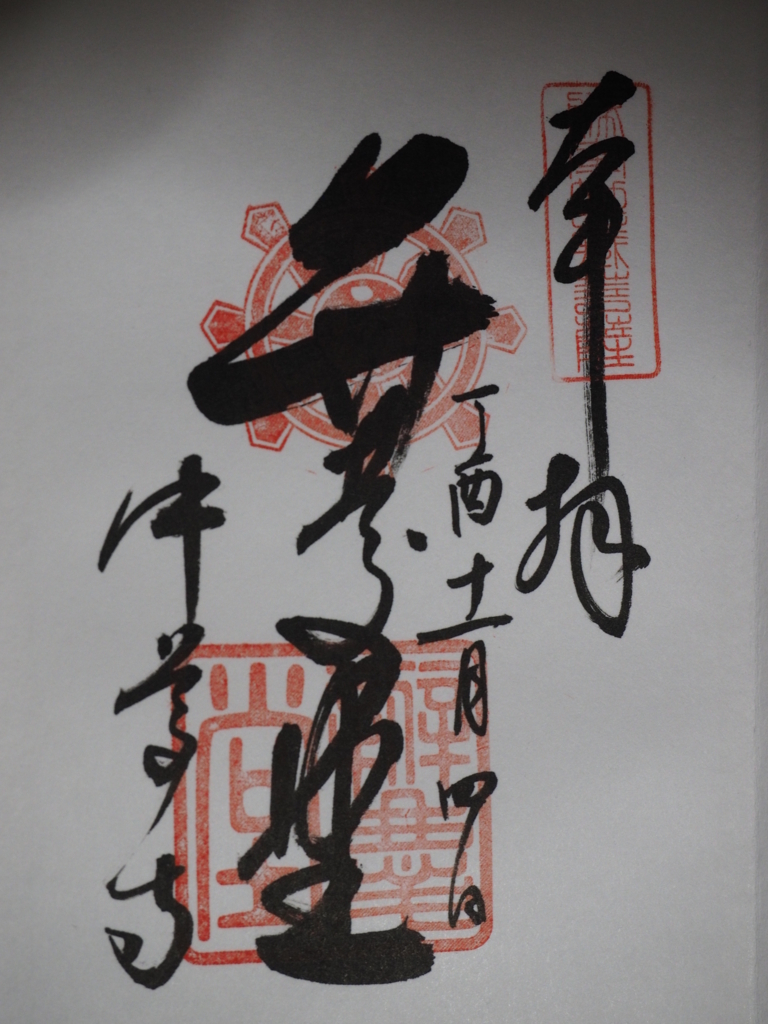 奉拝
丁酉十一月四日
弁慶堂
中尊寺